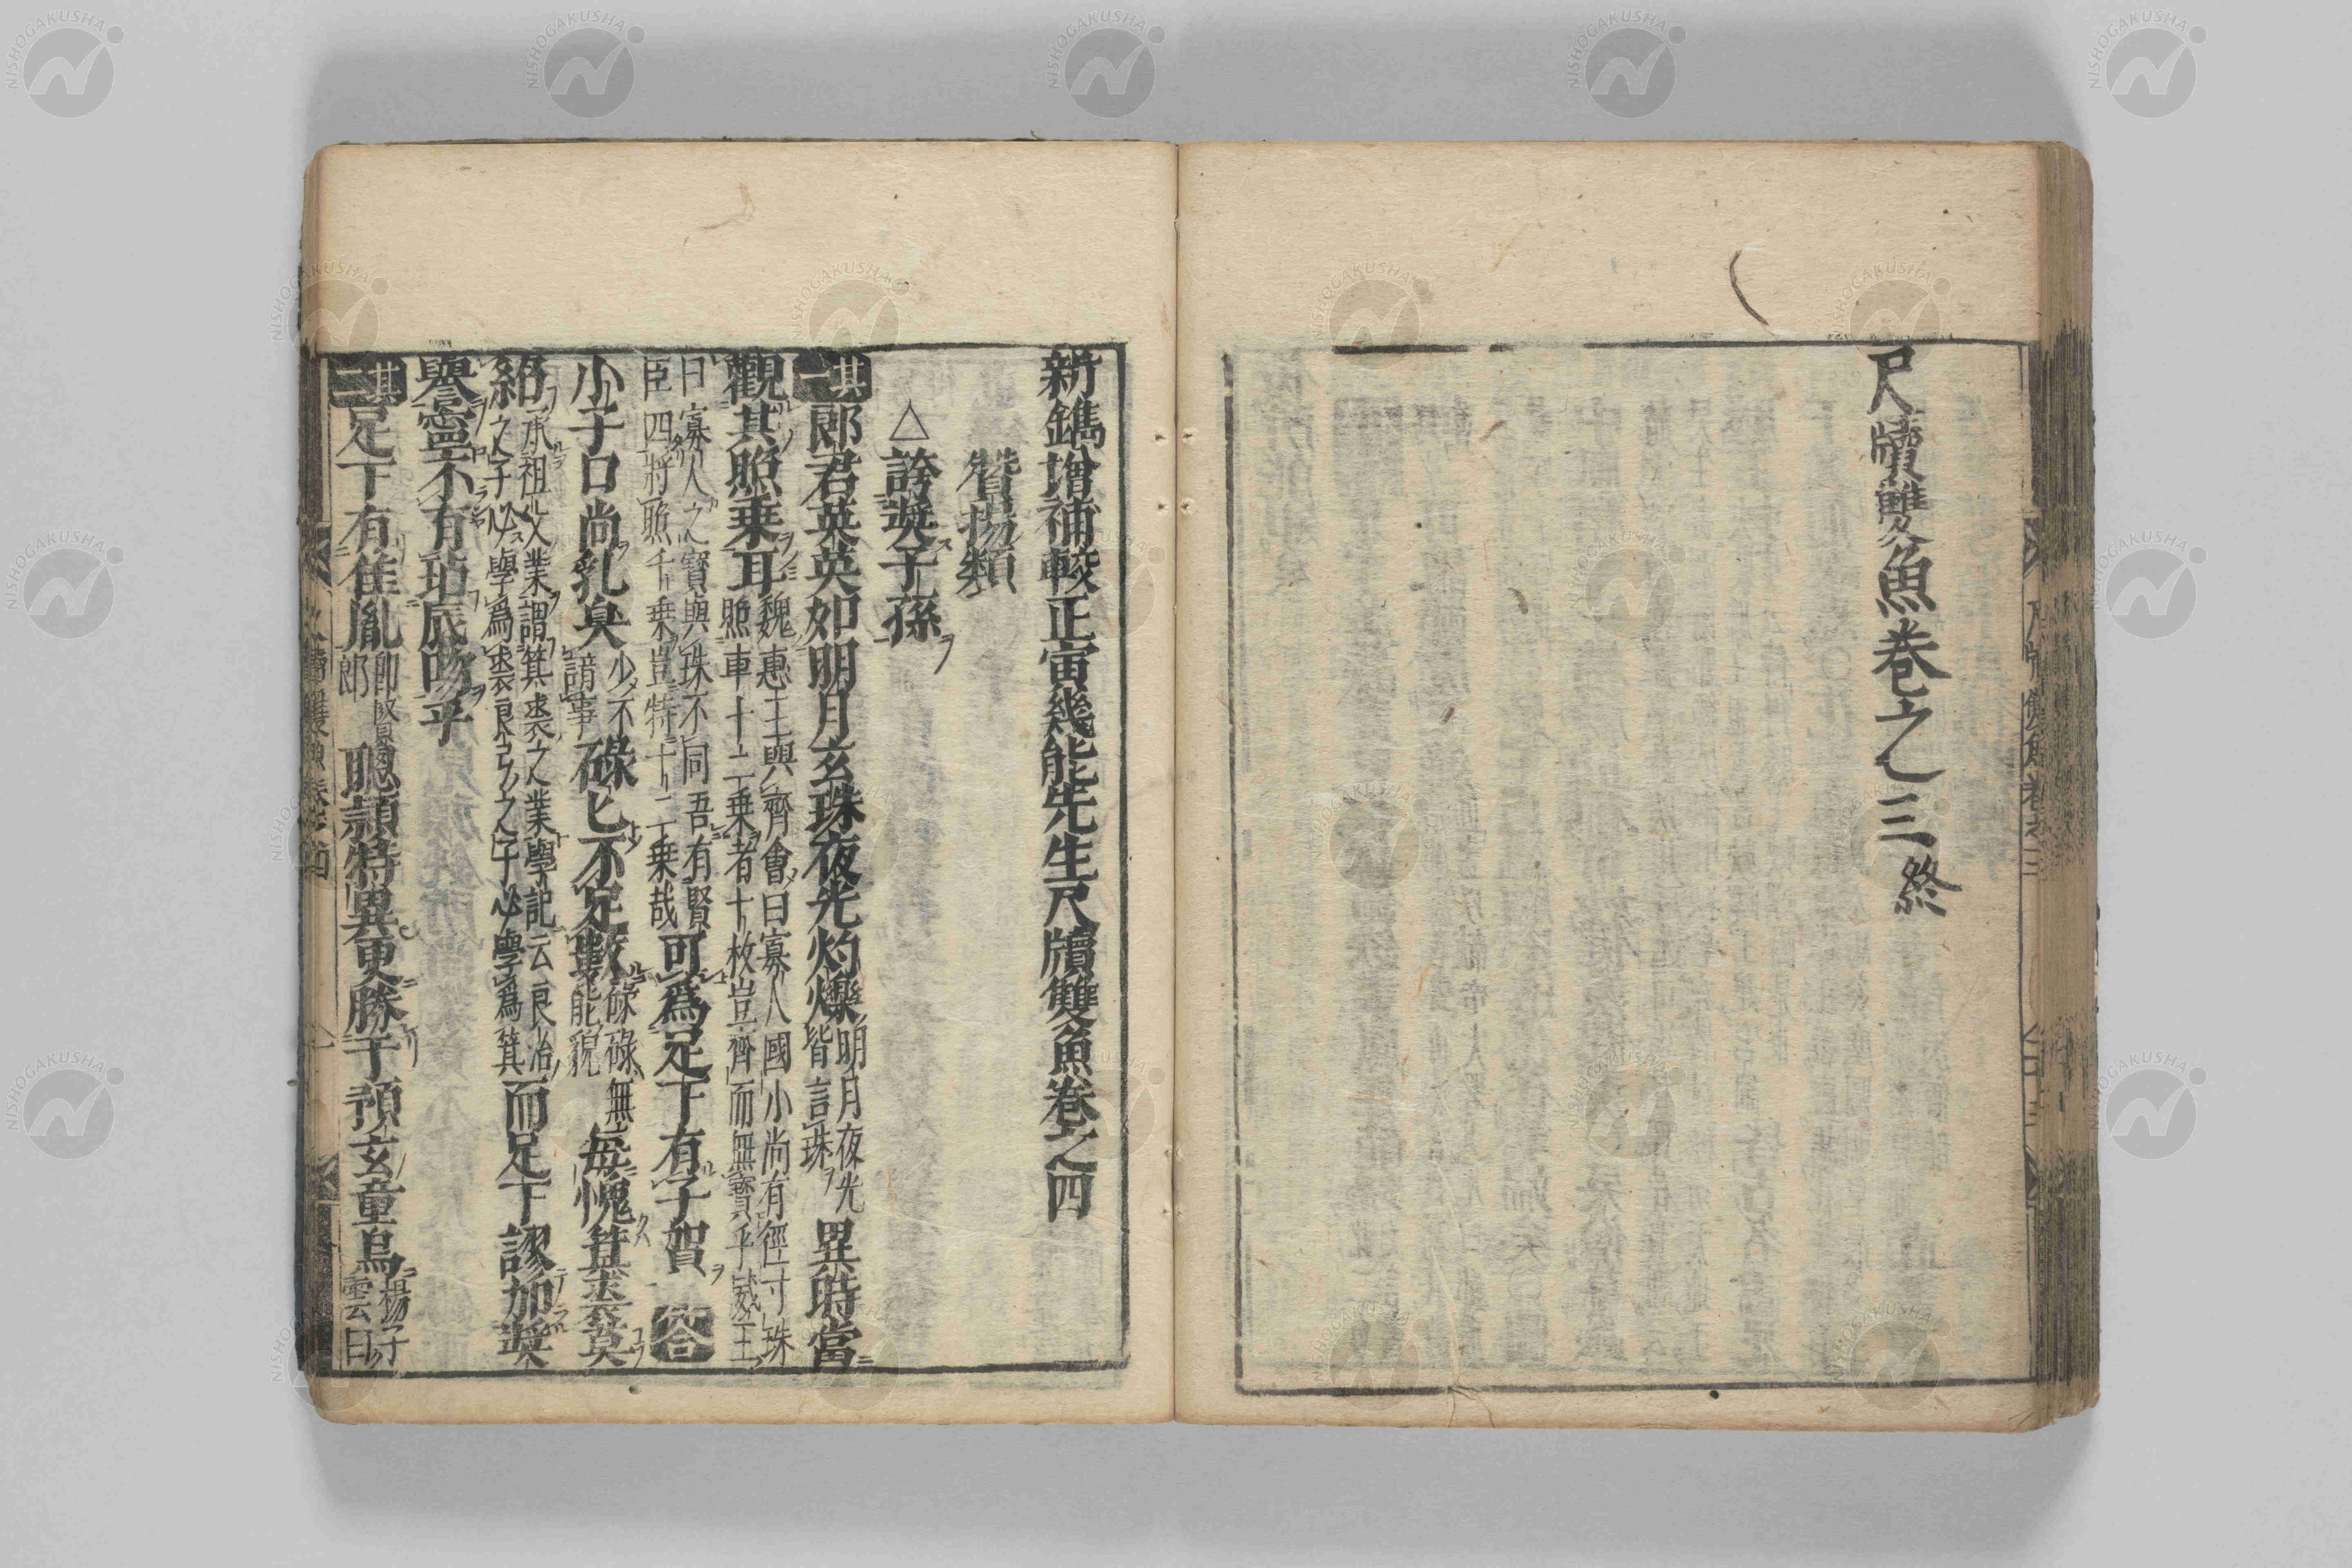 尺牘雙魚卷之三終
新鐫增補較正寅幾熊先生尺牘雙魚卷之四
贊揚類
△誇奨子孫
其一郎君英英如明月玄珠夜光灼爍明月夜光皆言珠異時當
觀其照乗耳魏惠王與齊會曰寡人國小尚有徑寸珠照車十二乗者十枚豈齊而無寶乎威王
曰寡人之寶與珠不同吾有賢臣四將照千乗豈特十二乗哉可爲足下有子賀答
小子口尚乳臭少不諳事碌匕不足數碌碌無能貌毎愧箕裘莫
紹承祖父業謂箕裘之業學記云良冶之子必學爲裘良弓之子必學爲箕而足下謬加奨
譽寧不有玷辰吻乎
其二足下有佳胤卽賢郎聰頴特異更勝于預玄童烏楊子雲曰
NISHOGAKUSHA